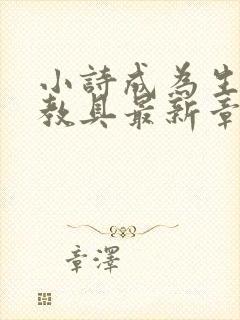 小詩成為生
教具最新章
章澤